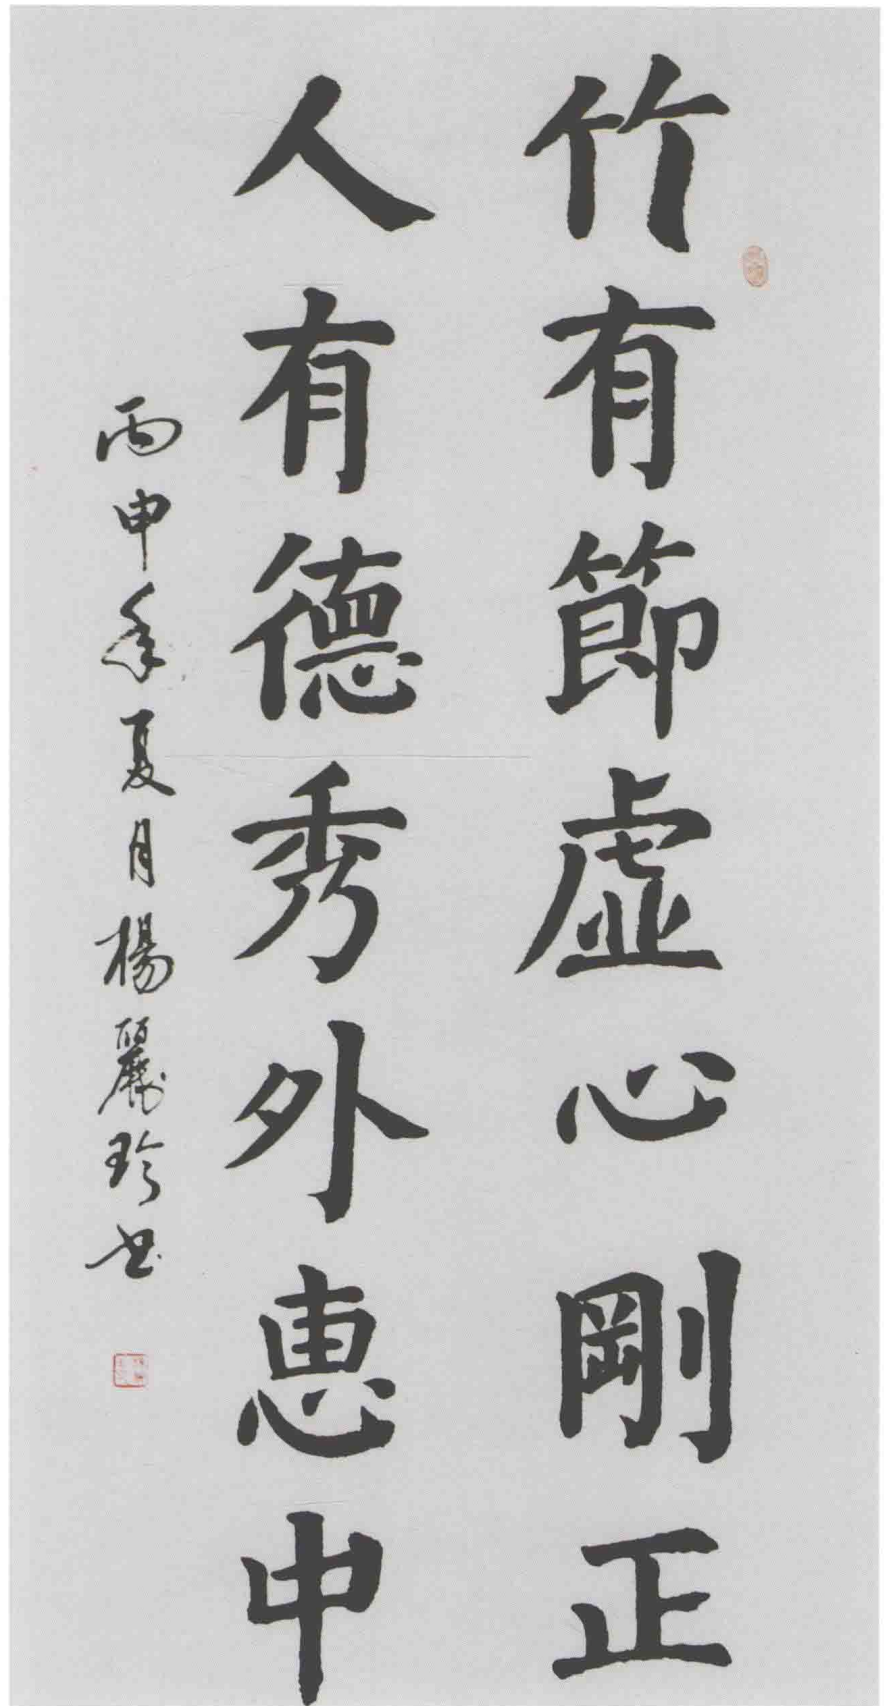 竹有節虚心剛正
人有德秀外恵中
丙申年夏月楊麗珍书